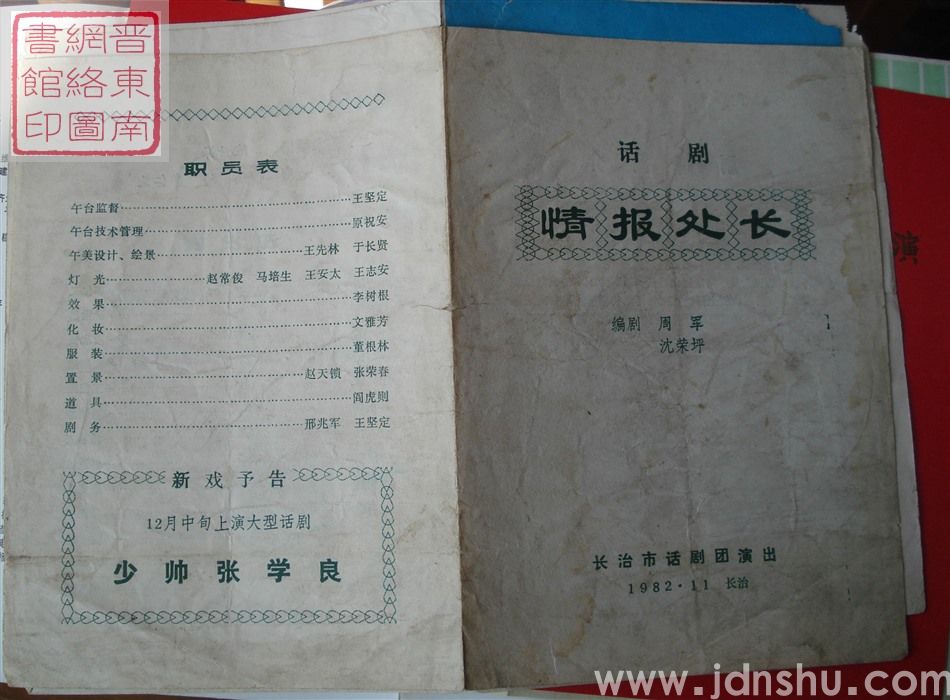 晋东南
网络图
书馆印
职员表
午台监督……王坚定
午台技术管理……原祝安
午美设计、绘景……王先林 于长贤
灯光……赵常俊 马培生 王安太 王志安
效果……李树根
化妆……文雅芳
服装……董根林
置景……赵天锁 张荣春
道具……阎虎则
剧务……邢兆军 王坚定
新戏予告
12月中旬上演大型话剧
少帅张学良
话剧
情报处长
编剧 周军
沈荣坪
长治市话剧团演出
1982·11 长治
演
www.jdnshu.com